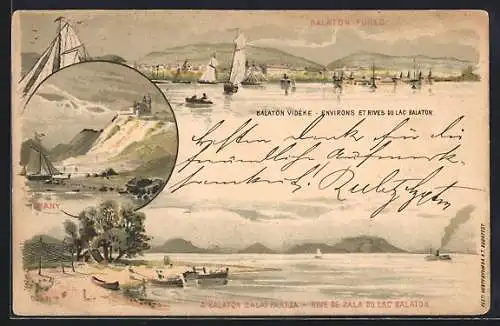 BALATON FÜRED
BALATON VIDÉKE - ENVIRONS ET RIVES DU LAC BALATON
Besten Dank für die
freundliche Aufmerk-
samkeit!
TIHANY
A BALATON ZALAI PARTJA - RIVE DE ZALA DU LAC BALATON